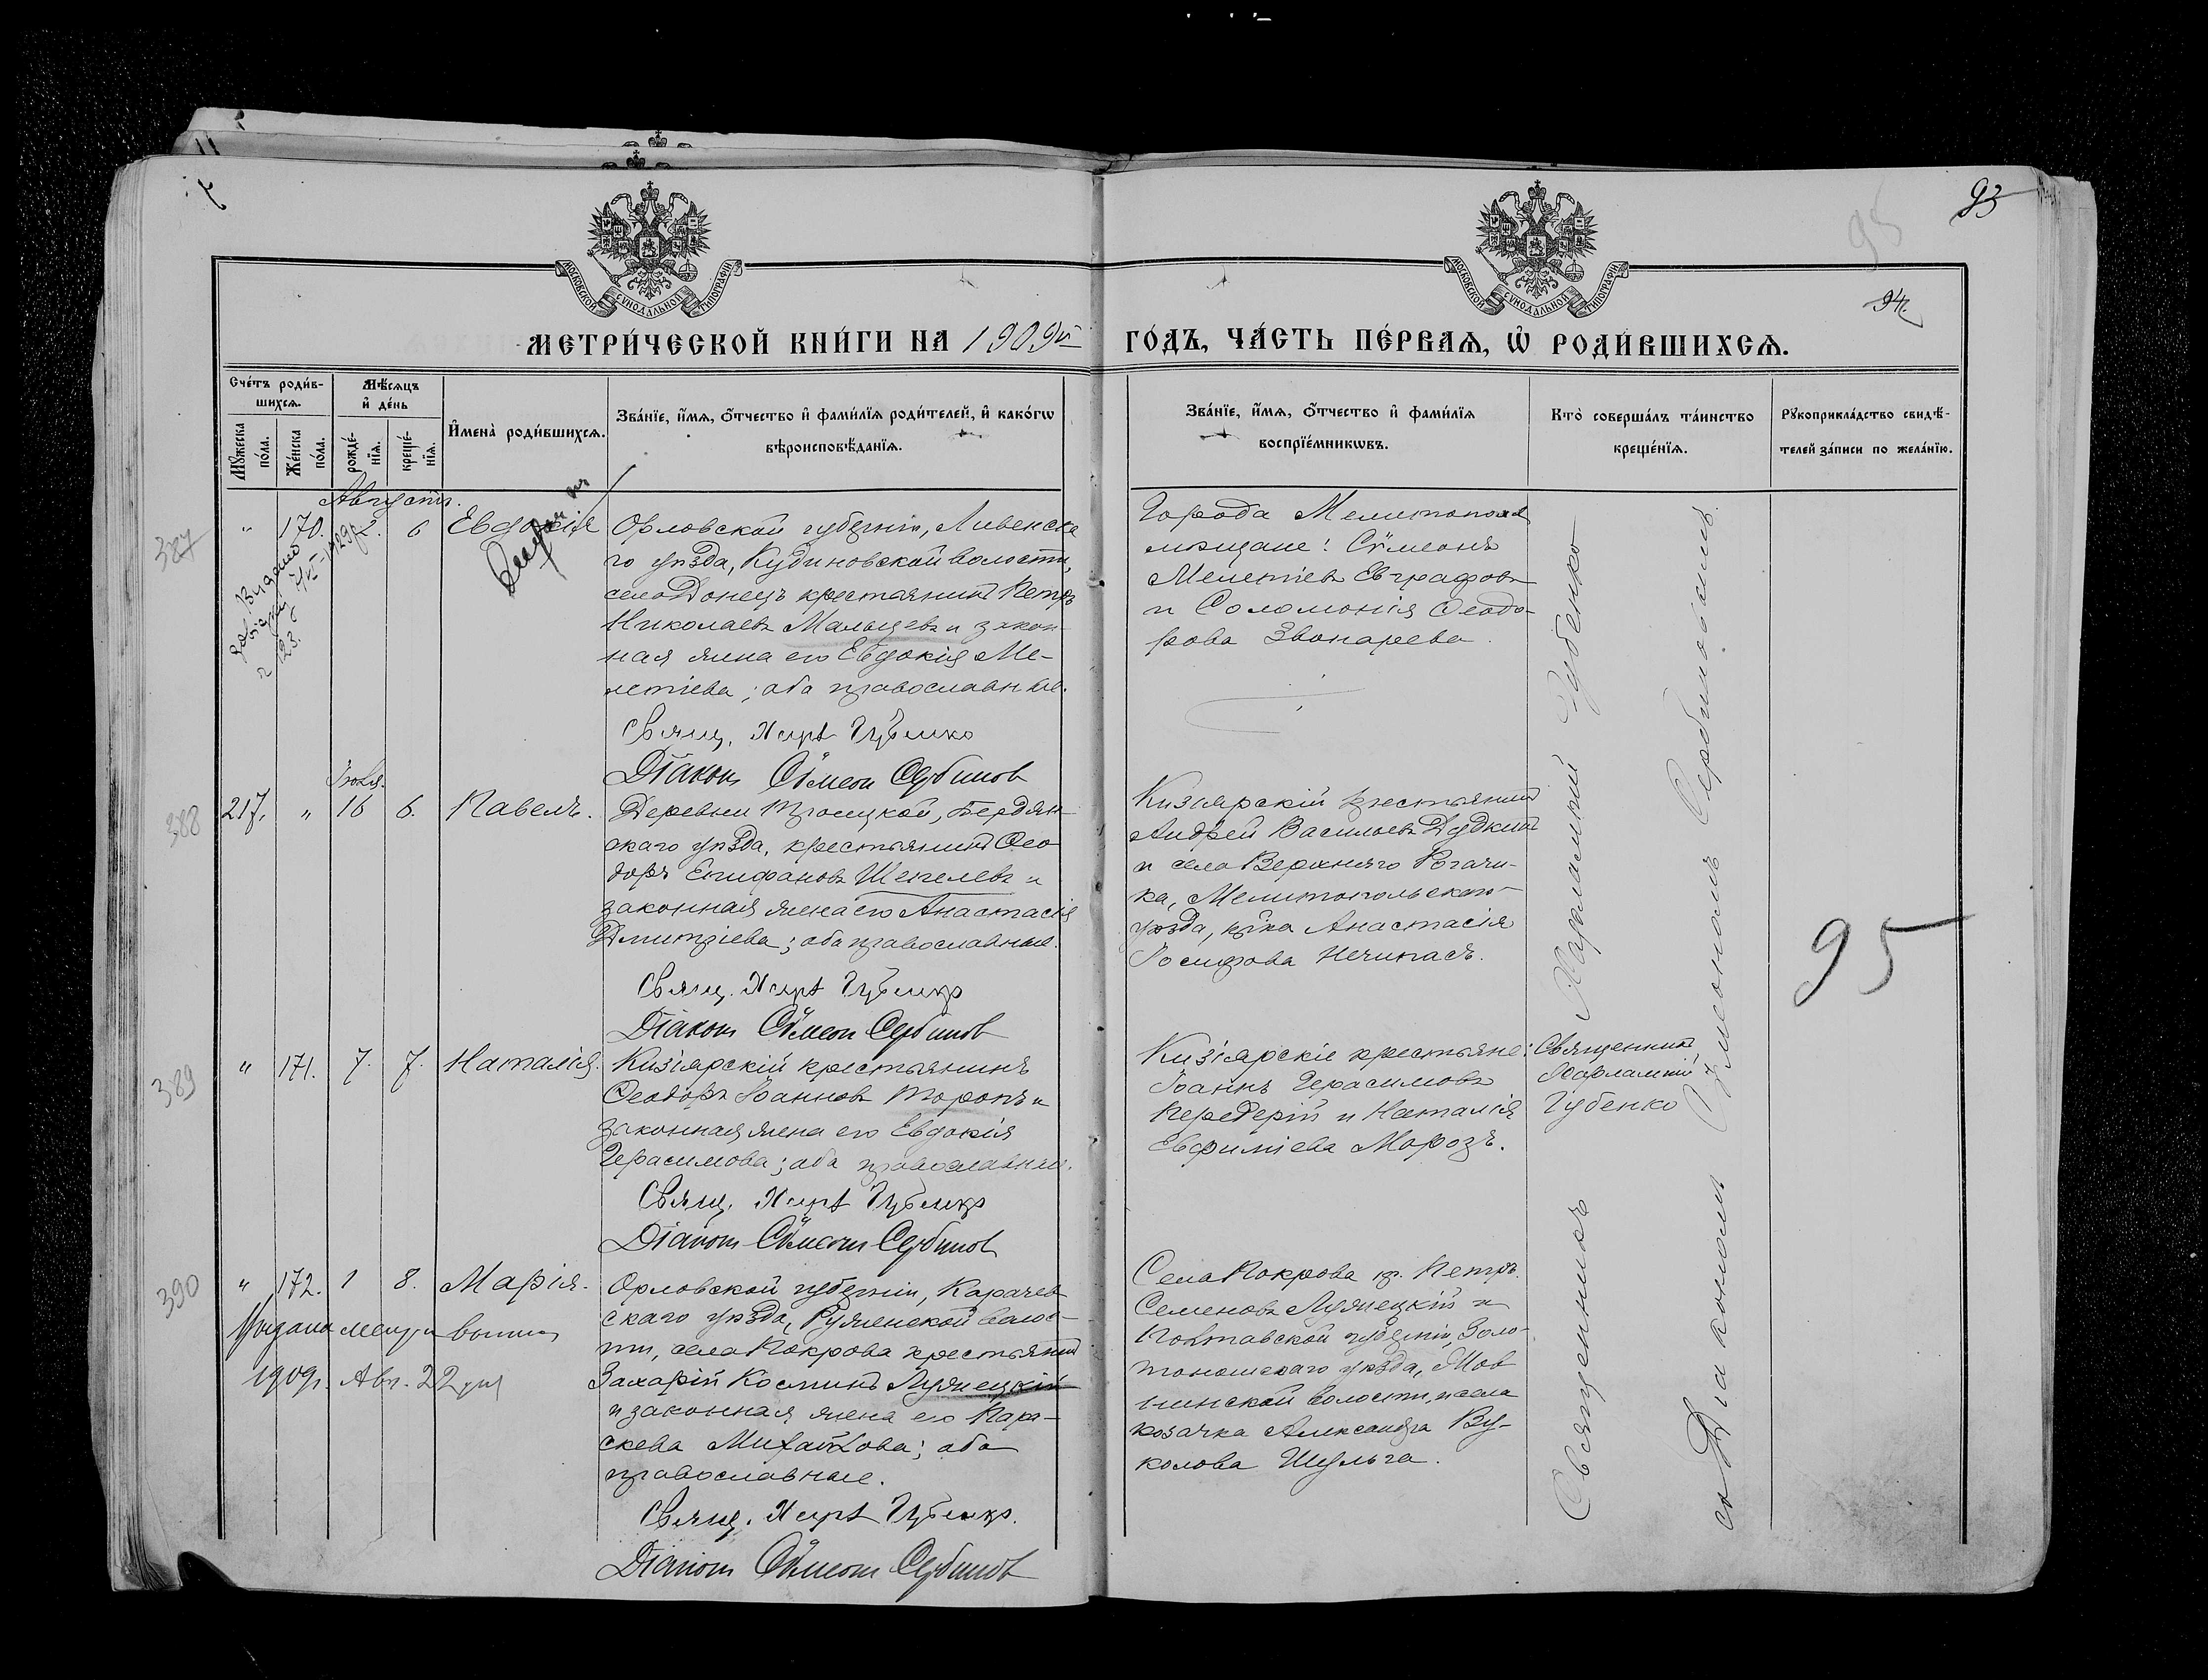 93
95
94.
МОСКОВСКОЙ СУНОДАЛЬНОЙ ТИПОГРАФІИ
МОСКОВСКОЙ СУНОДАЛЬНОЙ ТИПОГРАФІИ
МЕТРИ́ЧЕСКОЙ КНИ́ГИ НА 1909й ГО́ДЪ, ЧА́СТЬ ПЕ́РВАѦ, Ѡ҆ РОДИ́ВШИХСѦ.
Сче́тъ роди́в-
шихсѧ.
Мѣ́сѧцъ
и҆ де́нь
Мꙋ́жеска
по́ла.
Же́нска
по́ла.
рожде́-
нїѧ.
креще́-
нїѧ.
И҆мена̀ роди́вшихсѧ.
Зва́нїе, и҆́мѧ, ѻ҆́тчество и҆ фами́лїѧ роди́телей, и҆ како́гѡ
вѣроисповѣ́данїѧ.
Зва́нїе, и҆́мѧ, ѻ҆́тчество и҆ фами́лїѧ
воспрїе́мникѡвъ.
Кто̀ соверша́лъ та́инство
креще́нїѧ.
Рꙋкоприкла́дство свидѣ́-
телей за́писи по жела́нїю.
Августъ.
387
" 170. 2. 6 Евдокія
Орловской губерніи, Ливенска
го уѣзда, Кудиновской волости,
село Донецъ крестьянинъ Петръ
Николаевъ Мальцевъ и закон-
ная жена его Евдокія Ме-
летіева; оба православные.
Свящ. Харл. Губенко
Діаконъ Сѵмеон Сербинов
Города Мелитополя
мѣщане: Сѵмеонъ
Мелетіевъ Евграфовъ
и Соломонія Ѳеодо-
рова Звонарева.
Іюля.
388
217. " 16 6. Павелъ.
Деревни Троицкой, Бердян-
скаго уѣзда, крестьянинъ Ѳео
доръ Епифановъ Шепелевъ и
законная жена его Анастасія
Дмитріева; оба православные.
Свящ. Харл. Губенко
Діаконъ Сѵмеон Сербинов
Кизіярскій крестьянинъ
Андрей Васильевъ Дудкинъ
и села Верхняго Рогачи-
ка, Мелитопольскаго
уѣзда, кр-ка Анастасія
Іосифова Нечипасъ.
95
389
" 171. 7. 7. Наталія.
Кизіярскій крестьянинъ
Ѳеодоръ Іоанновъ Торопъ и
законная жена его Евдокія
Герасимова; оба православные.
Свящ. Харл. Губенко
Діаконъ Сѵмеон Сербинов
Кизіярскіе крестьяне:
Іоаннъ Герасимовъ
Передерій и Наталія
Евфиміева Морозъ.
Священникъ
Харлампій
Губенко
390
" 172. 1 8. Марія.
Выдана
1909г. Авг. 22 дня
Орловской губерніи, Карачев
скаго уѣзда, Руженской волос-
ти, села Покрова крестьянинъ
Захарій Косминъ Лужецкій
и законная жена его Пара-
скева Михайлова; оба
православные.
Свящ. Харл. Губенко.
Діаконъ Сѵмеон Сербинов
Села Покрова кр. Петръ
Семеновъ Лужецкій и
Полтавской губерніи, Золо-
тоношскаго уѣзда,
волости, и села
козачка Александра Ву-
колова Шульга.
Священникъ Харлампій Губенко
съ Діакономъ Сѵмеономъ Сербиновымъ.